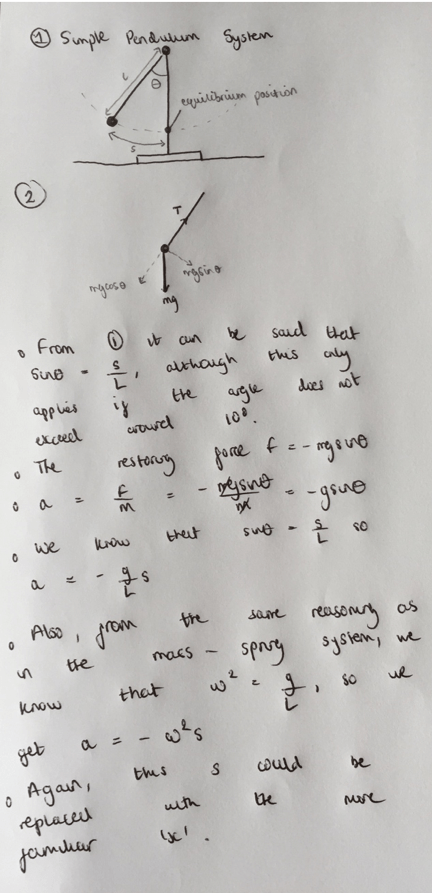 ① Simple Pendulum System
L
θ
equilibrium position
s
②
T
mgcosθ
mgsinθ
mg
• From ① it can be said that
sinθ = s/L, although this only
applies if the angle does not
exceed around 10°.
• The restoring force F = -mgsinθ
• a = F/m = - mgsinθ/m = -gsinθ
• We know that sinθ = s/L so
a = - g/L s
• Also, from the same reasoning as
in the mass - spring system, we
know that ω² = g/L, so we
get a = - ω²s
• Again, this s could be
replaced with the more
familiar 'x'.